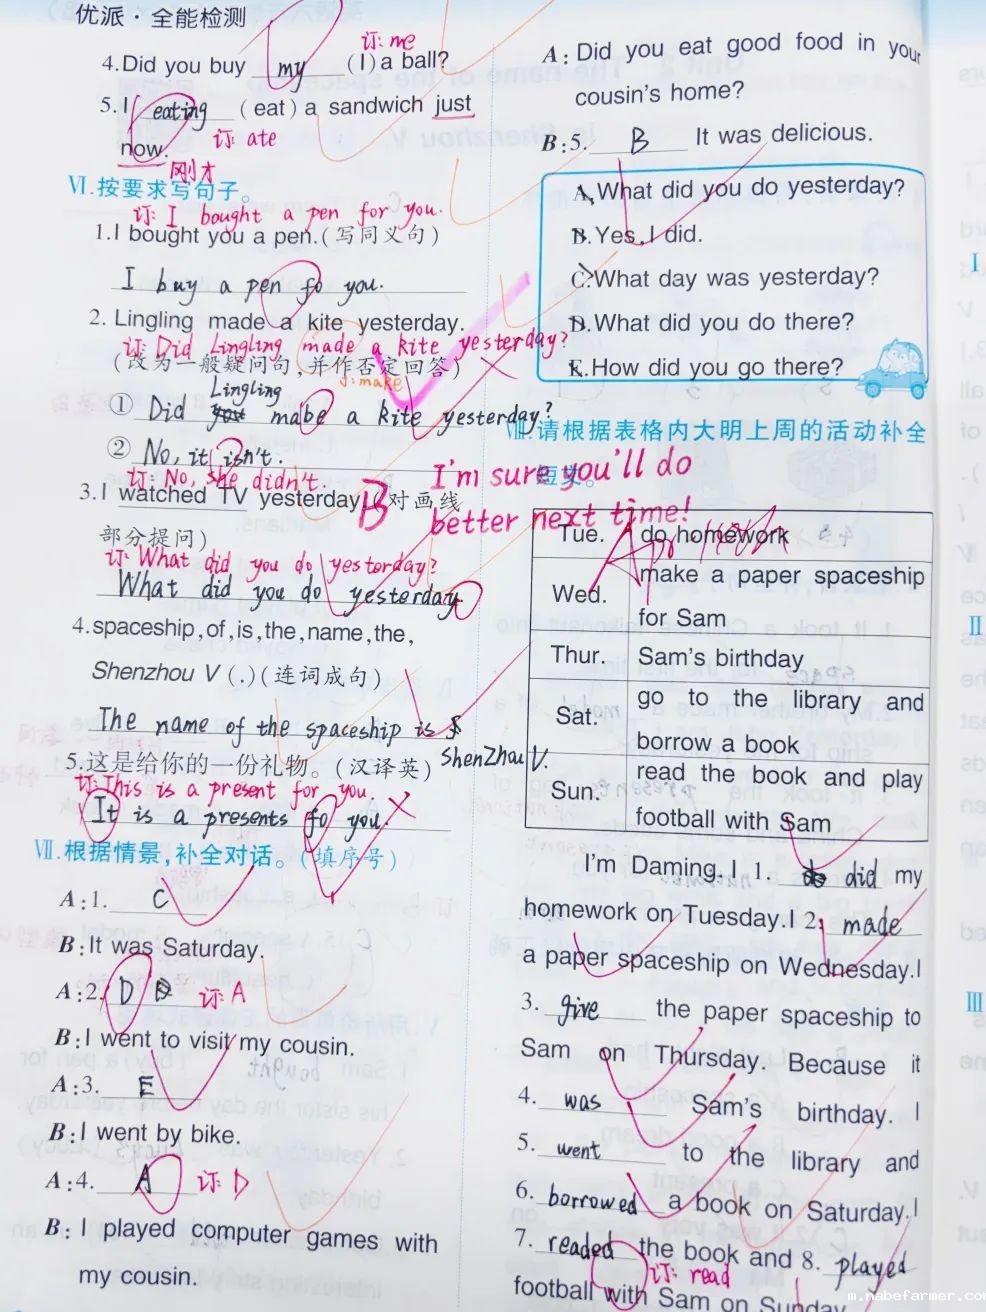 优派·全能检测
订: me
4.Did you buy my (I) a ball?
5.I eating (eat) a sandwich just
now. 订: ate
刚才
Ⅵ.按要求写句子。
订: I bought a pen for you.
1.I bought you a pen.(写同义句)
I buy a pen fo you.
2. Lingling made a kite yesterday.
订: Did Lingling made a kite yesterday?
(改为一般疑问句,并作否定回答)
订: make
Lingling
① Did mabe a kite yesterday?
② No, it isn't.
订: No, she didn't.
3.I watched TV yesterday.(对画线
部分提问)
订: What did you do yesterday?
What did you do yesterday.
4.spaceship,of,is,the,name,the,
Shenzhou V (.)(连词成句)
The name of the spaceship is
ShenZhou V.
5.这是给你的一份礼物。(汉译英)
订: This is a present for you.
It is a presents fo you.
Ⅶ.根据情景,补全对话。(填序号)
A:1. C
B:It was Saturday.
A:2. D 订: A
B:I went to visit my cousin.
A:3. E
B:I went by bike.
A:4. A 订: D
B: I played computer games with
my cousin.
A: Did you eat good food in your
cousin's home?
B:5. B It was delicious.
A.What did you do yesterday?
B.Yes,I did.
C.What day was yesterday?
D.What did you do there?
E.How did you go there?
Ⅷ.请根据表格内大明上周的活动补全
短文。
B I'm sure you'll do
better next time!
Tue. do homework
Wed. make a paper spaceship
for Sam
Thur. Sam's birthday
Sat. go to the library and
borrow a book
Sun. read the book and play
football with Sam
I'm Daming. I 1. did my
homework on Tuesday.I 2. made
a paper spaceship on Wednesday.I
3. give the paper spaceship to
Sam on Thursday. Because it
4. was Sam's birthday. I
5. went to the library and
6. borrowed a book on Saturday.I
7. readed the book and 8. played
订: read
football with Sam on Sunday.
m.nabefarmer.com